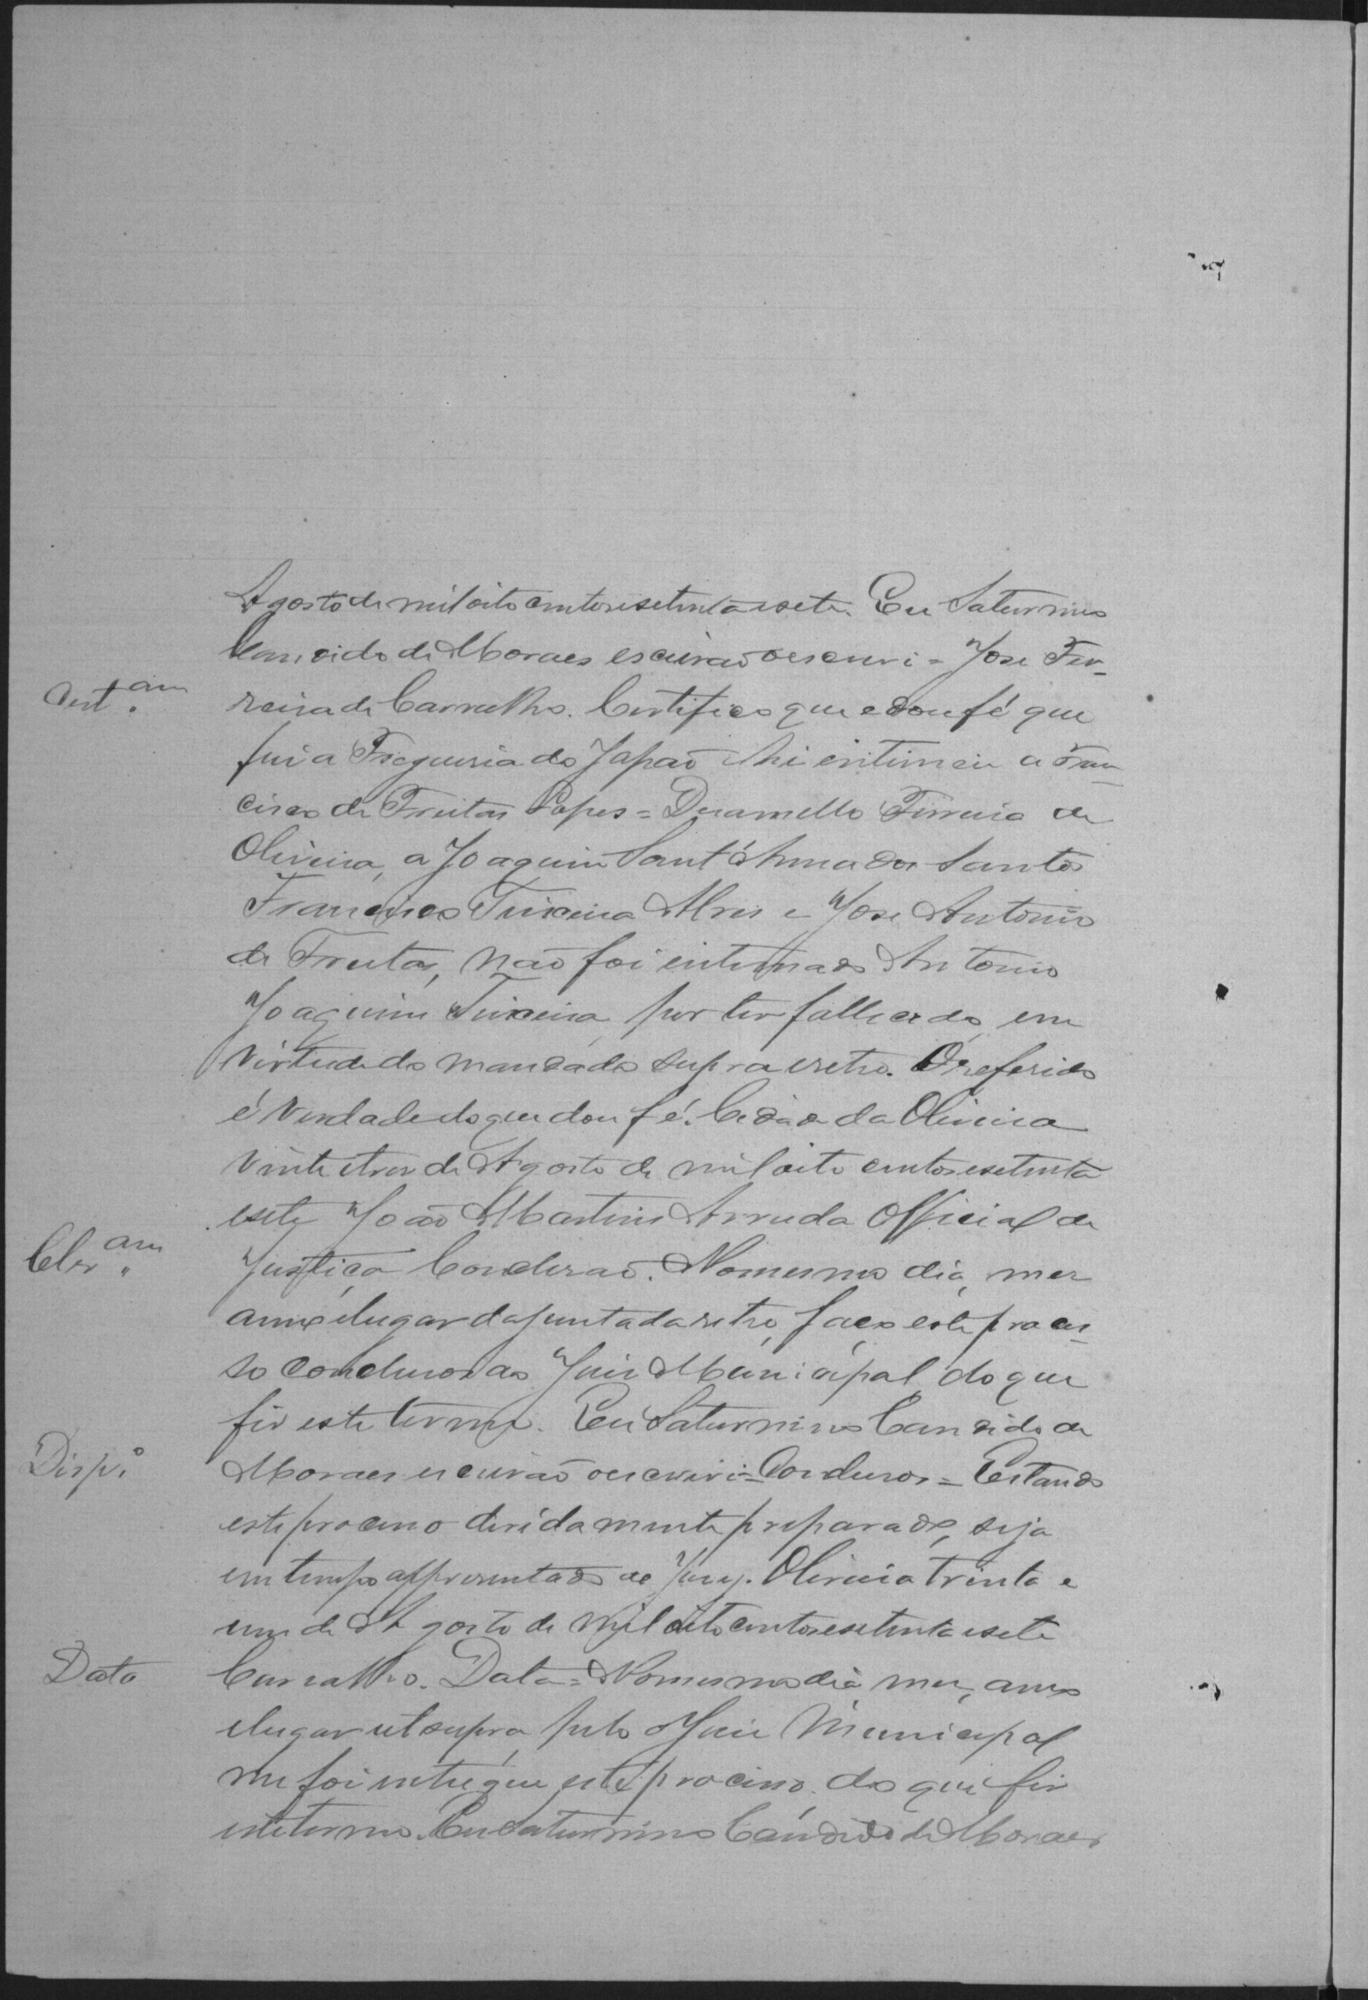 Agosto de mil oito centos e setenta e sete. Eu Saturnino
Candido de Moraes escrivão o escrevi = Jose Fer-
Cert.am reira de Carvalho. Certifico que e dou fé que
fui a Freguesia do Japão ahi entimei a Fran-
cisco de Freitas Lopes = Ferreira de
Oliveira, a Joaquim Sant'Anna dos Santos
Francisco Teixeira Alves e Jose Antonio
de Freitas, não foi intimado Antonio
Joaquim Teixeira por ter fallecido, em
virtude do mandado supra e retro. O referido
é verdade do que dou fé. Cidade da Oliveira
vinte e tres de Agosto de mil oito centos e setenta
e sete João Martins Arruda Official de
Cls.am Justiça Conclusão. No mesmo dia, mez
anno e lugar da juntada retro, faço este proces-
so concluso ao Juiz Municipal, do que
fiz este termo. Eu Saturnino Candido de
Desp.o Moraes escrivão o escrevi = Conclusos = Estando
este processo devidamente preparado, seja
em tempo appresentado ao Jury. Oliveira trinta e
um de Agosto de mil oito centos e setenta e sete
Data Carvalho. Data = No mesmo dia mez, anno
e lugar ut supra pelo Juiz Municipal
me foi entregue este processo do que fiz
este termo. Eu Saturnino Cândido de Moraes